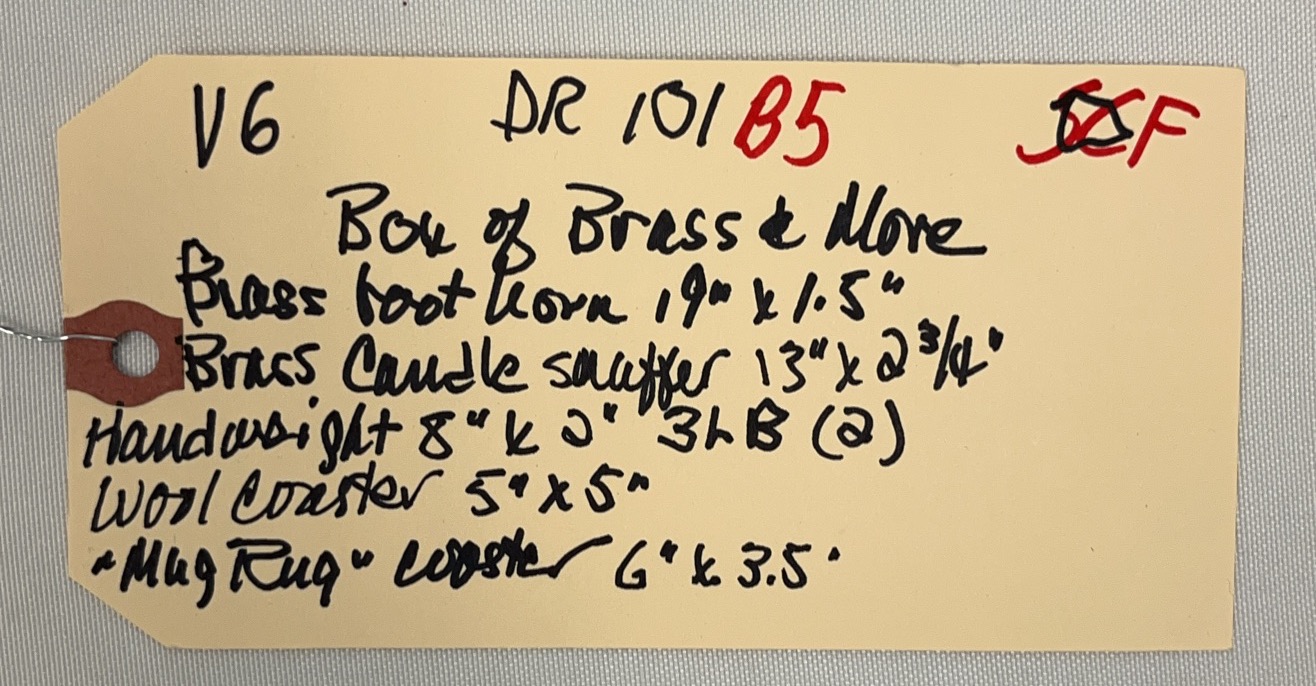 V6 DR 101 B5 F
Box of Brass & More
Brass boot horn 19" x 1.5"
Brass Candle snuffer 13" x 2 3/4"
Handweight 8" x 2" 3LB (2)
Wool Coaster 5" x 5"
"Mug Rug" coaster 6" x 3.5"